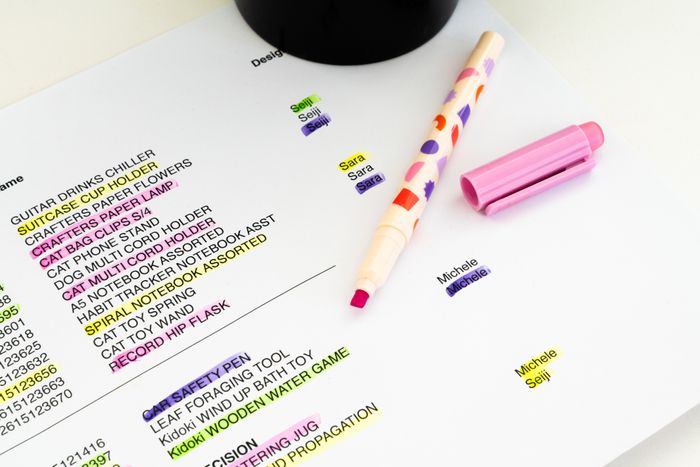 Design
ame
Seiji
Seiji
Seiji
Sara
Sara
Sara
GUITAR DRINKS CHILLER
SUITCASE CUP HOLDER
CRAFTERS PAPER FLOWERS
CRAFTERS PAPER LAMP
CAT BAG CLIPS S/4
CAT PHONE STAND
DOG MULTI CORD HOLDER
CAT MULTI CORD HOLDER
A5 NOTEBOOK ASSORTED
HABIT TRACKER NOTEBOOK ASST
SPIRAL NOTEBOOK ASSORTED
CAT TOY SPRING
CAT TOY WAND
RECORD HIP FLASK
Michele
Michele
38
595
3601
23618
123625
5123632
15123656
2615123663
2615123670
CAR SAFETY PEN
LEAF FORAGING TOOL
Kidoki WIND UP BATH TOY
Kidoki WOODEN WATER GAME
Michele
Seiji
5121416
2397
ECISION
TERING JUG
ND PROPAGATION